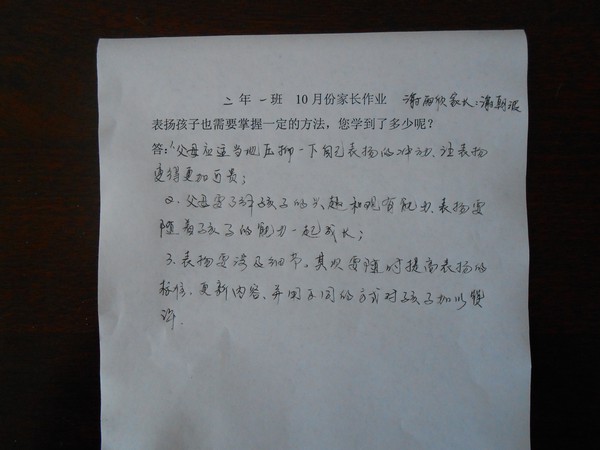 二年一班 10月份家长作业 谢雨欣家长:谢朝
表扬孩子也需要掌握一定的方法,您学到了多少呢?
答:1、父母应适当地压抑一下自己表扬的冲动、让表扬
变得更加可贵;
2、父母要了解孩子的兴趣和现有能力、表扬要
随着孩子的能力一起成长;
3、表扬要涉及细节。其次要随时提高表扬的
标准、更新内容、并用不同的方式对孩子加以赞
许.